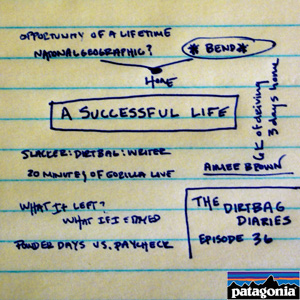 OPPORTUNITY OF A LIFETIME
NATIONAL GEOGRAPHIC?
* BEND *
HOME
A SUCCESSFUL LIFE
6K OF DRIVING
3 days home
SLACKER : DIRTBAG : WRITER
AIMEE BROWN
20 MINUTES OF GORILLA LOVE
WHAT IF I LEFT?
WHAT IF I STAYED
POWDER DAYS VS. PAYCHECK
THE DIRTBAG
DIARIES
EPISODE 36
patagonia